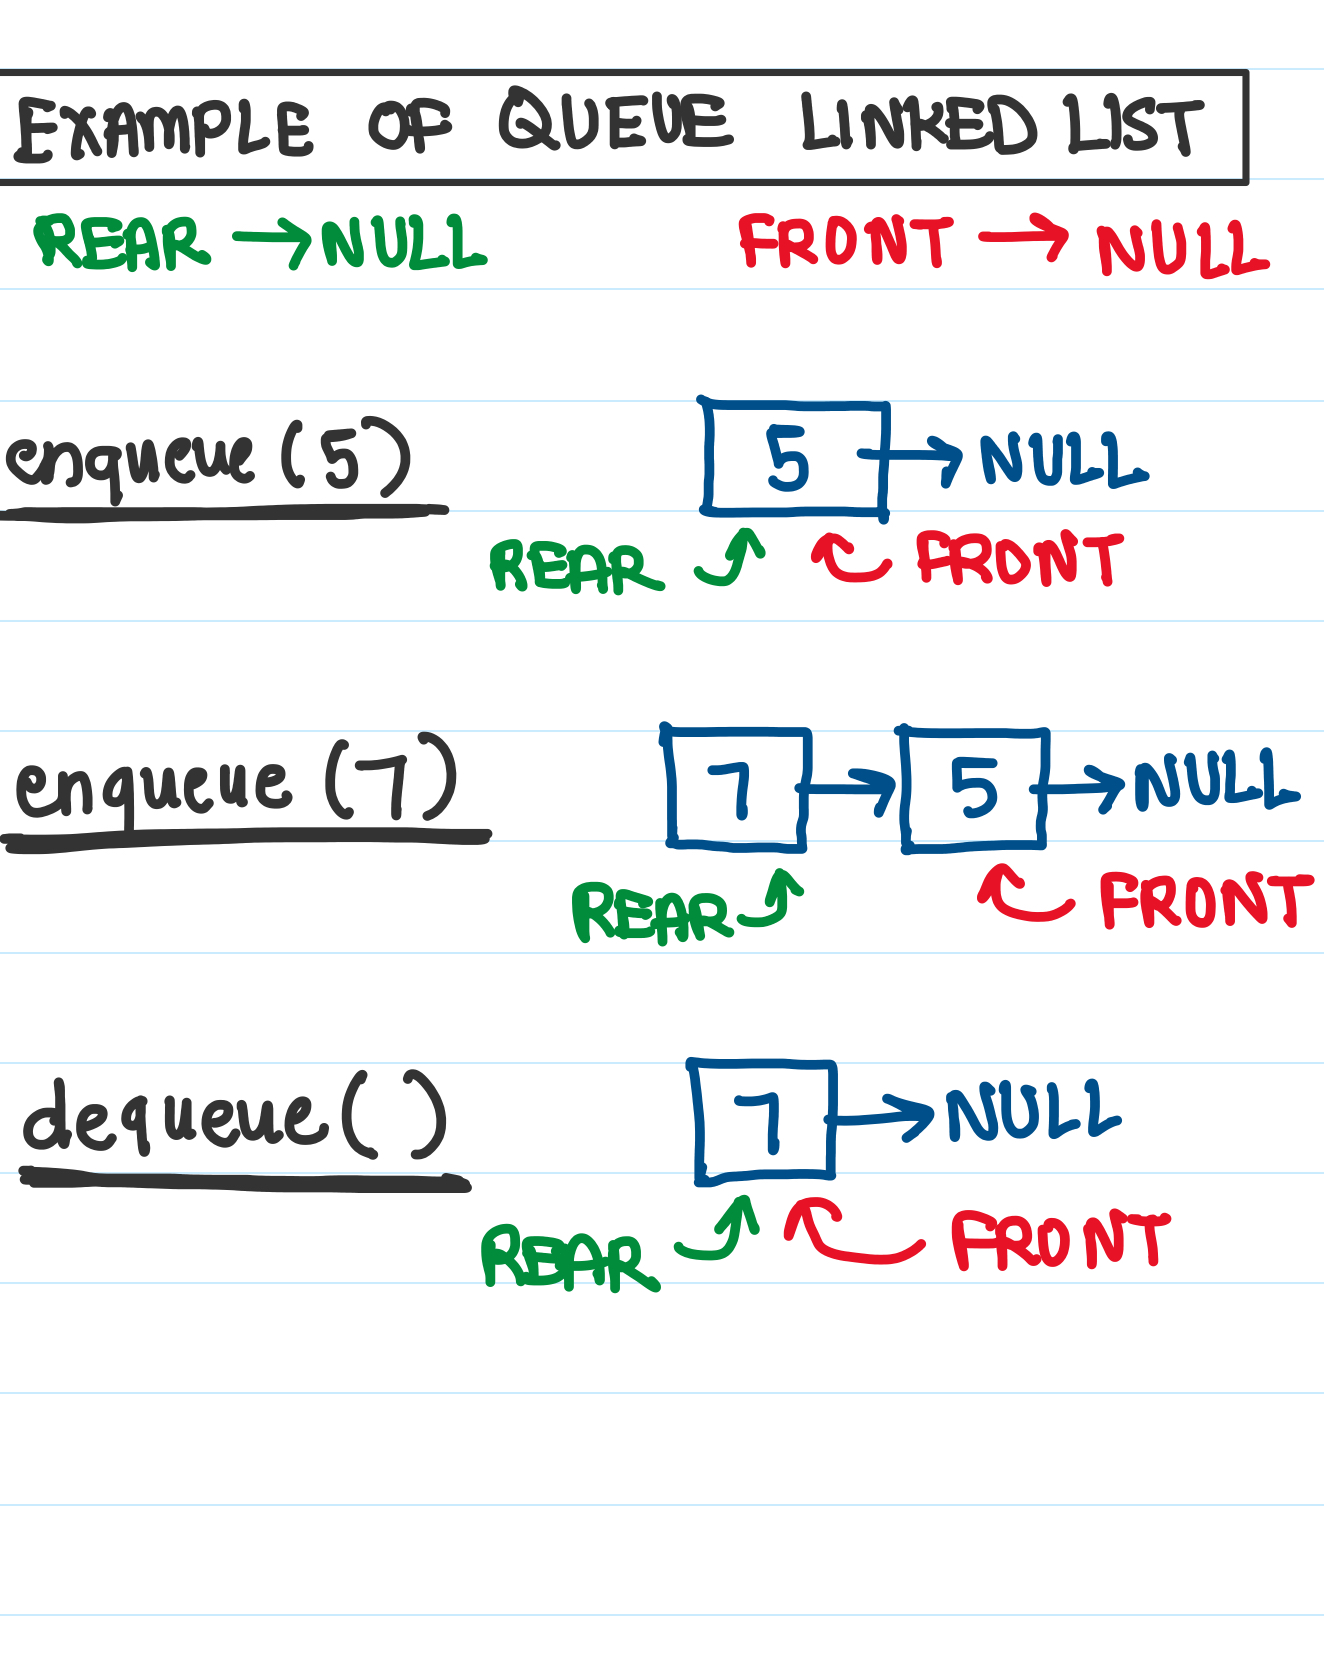 EXAMPLE OF QUEUE LINKED LIST
REAR → NULL FRONT → NULL
enqueue (5) 5 → NULL
REAR FRONT
enqueue (7) 7 → 5 → NULL
REAR FRONT
dequeue() 7 → NULL
REAR FRONT